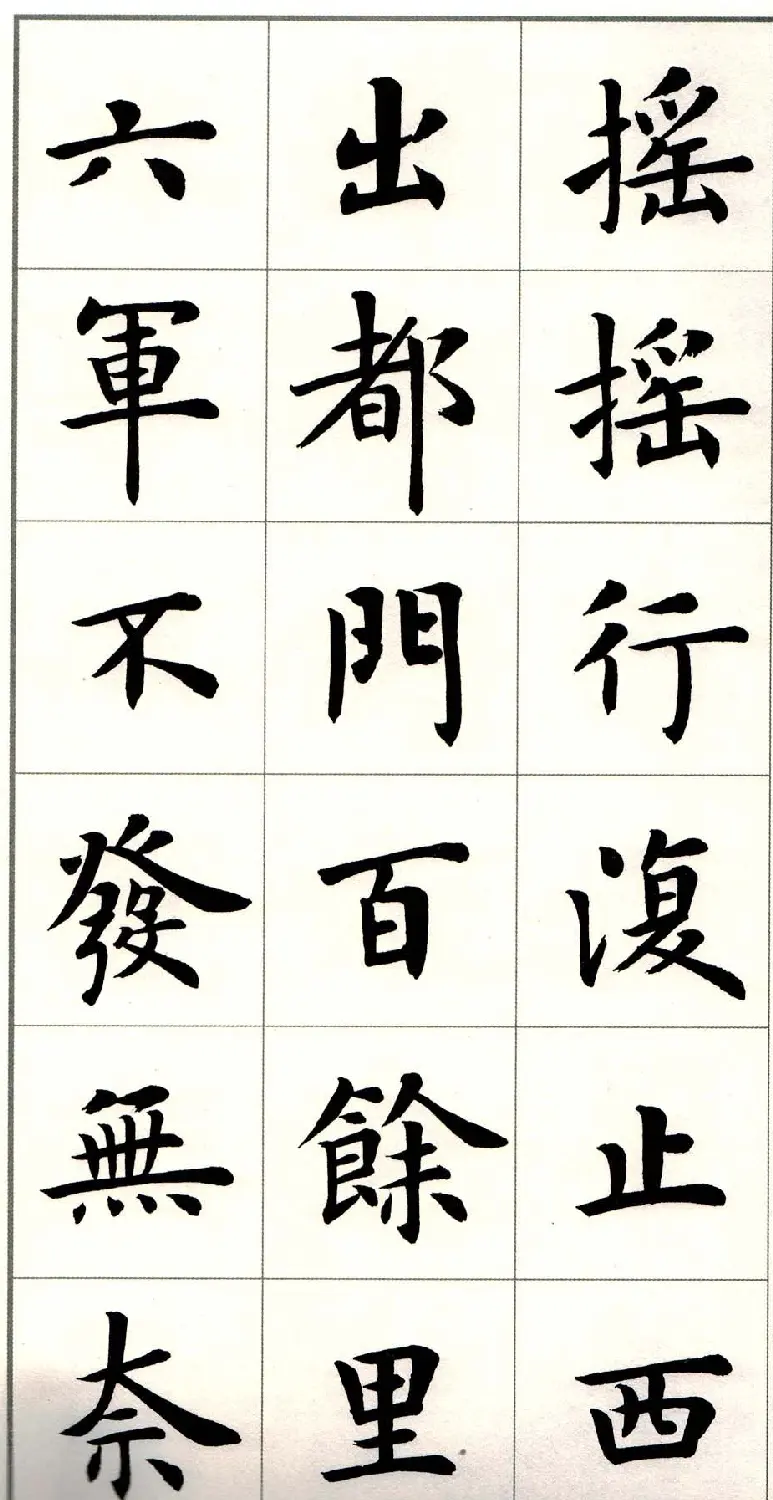 摇摇行復止西
出都門百餘里
六軍不發無奈